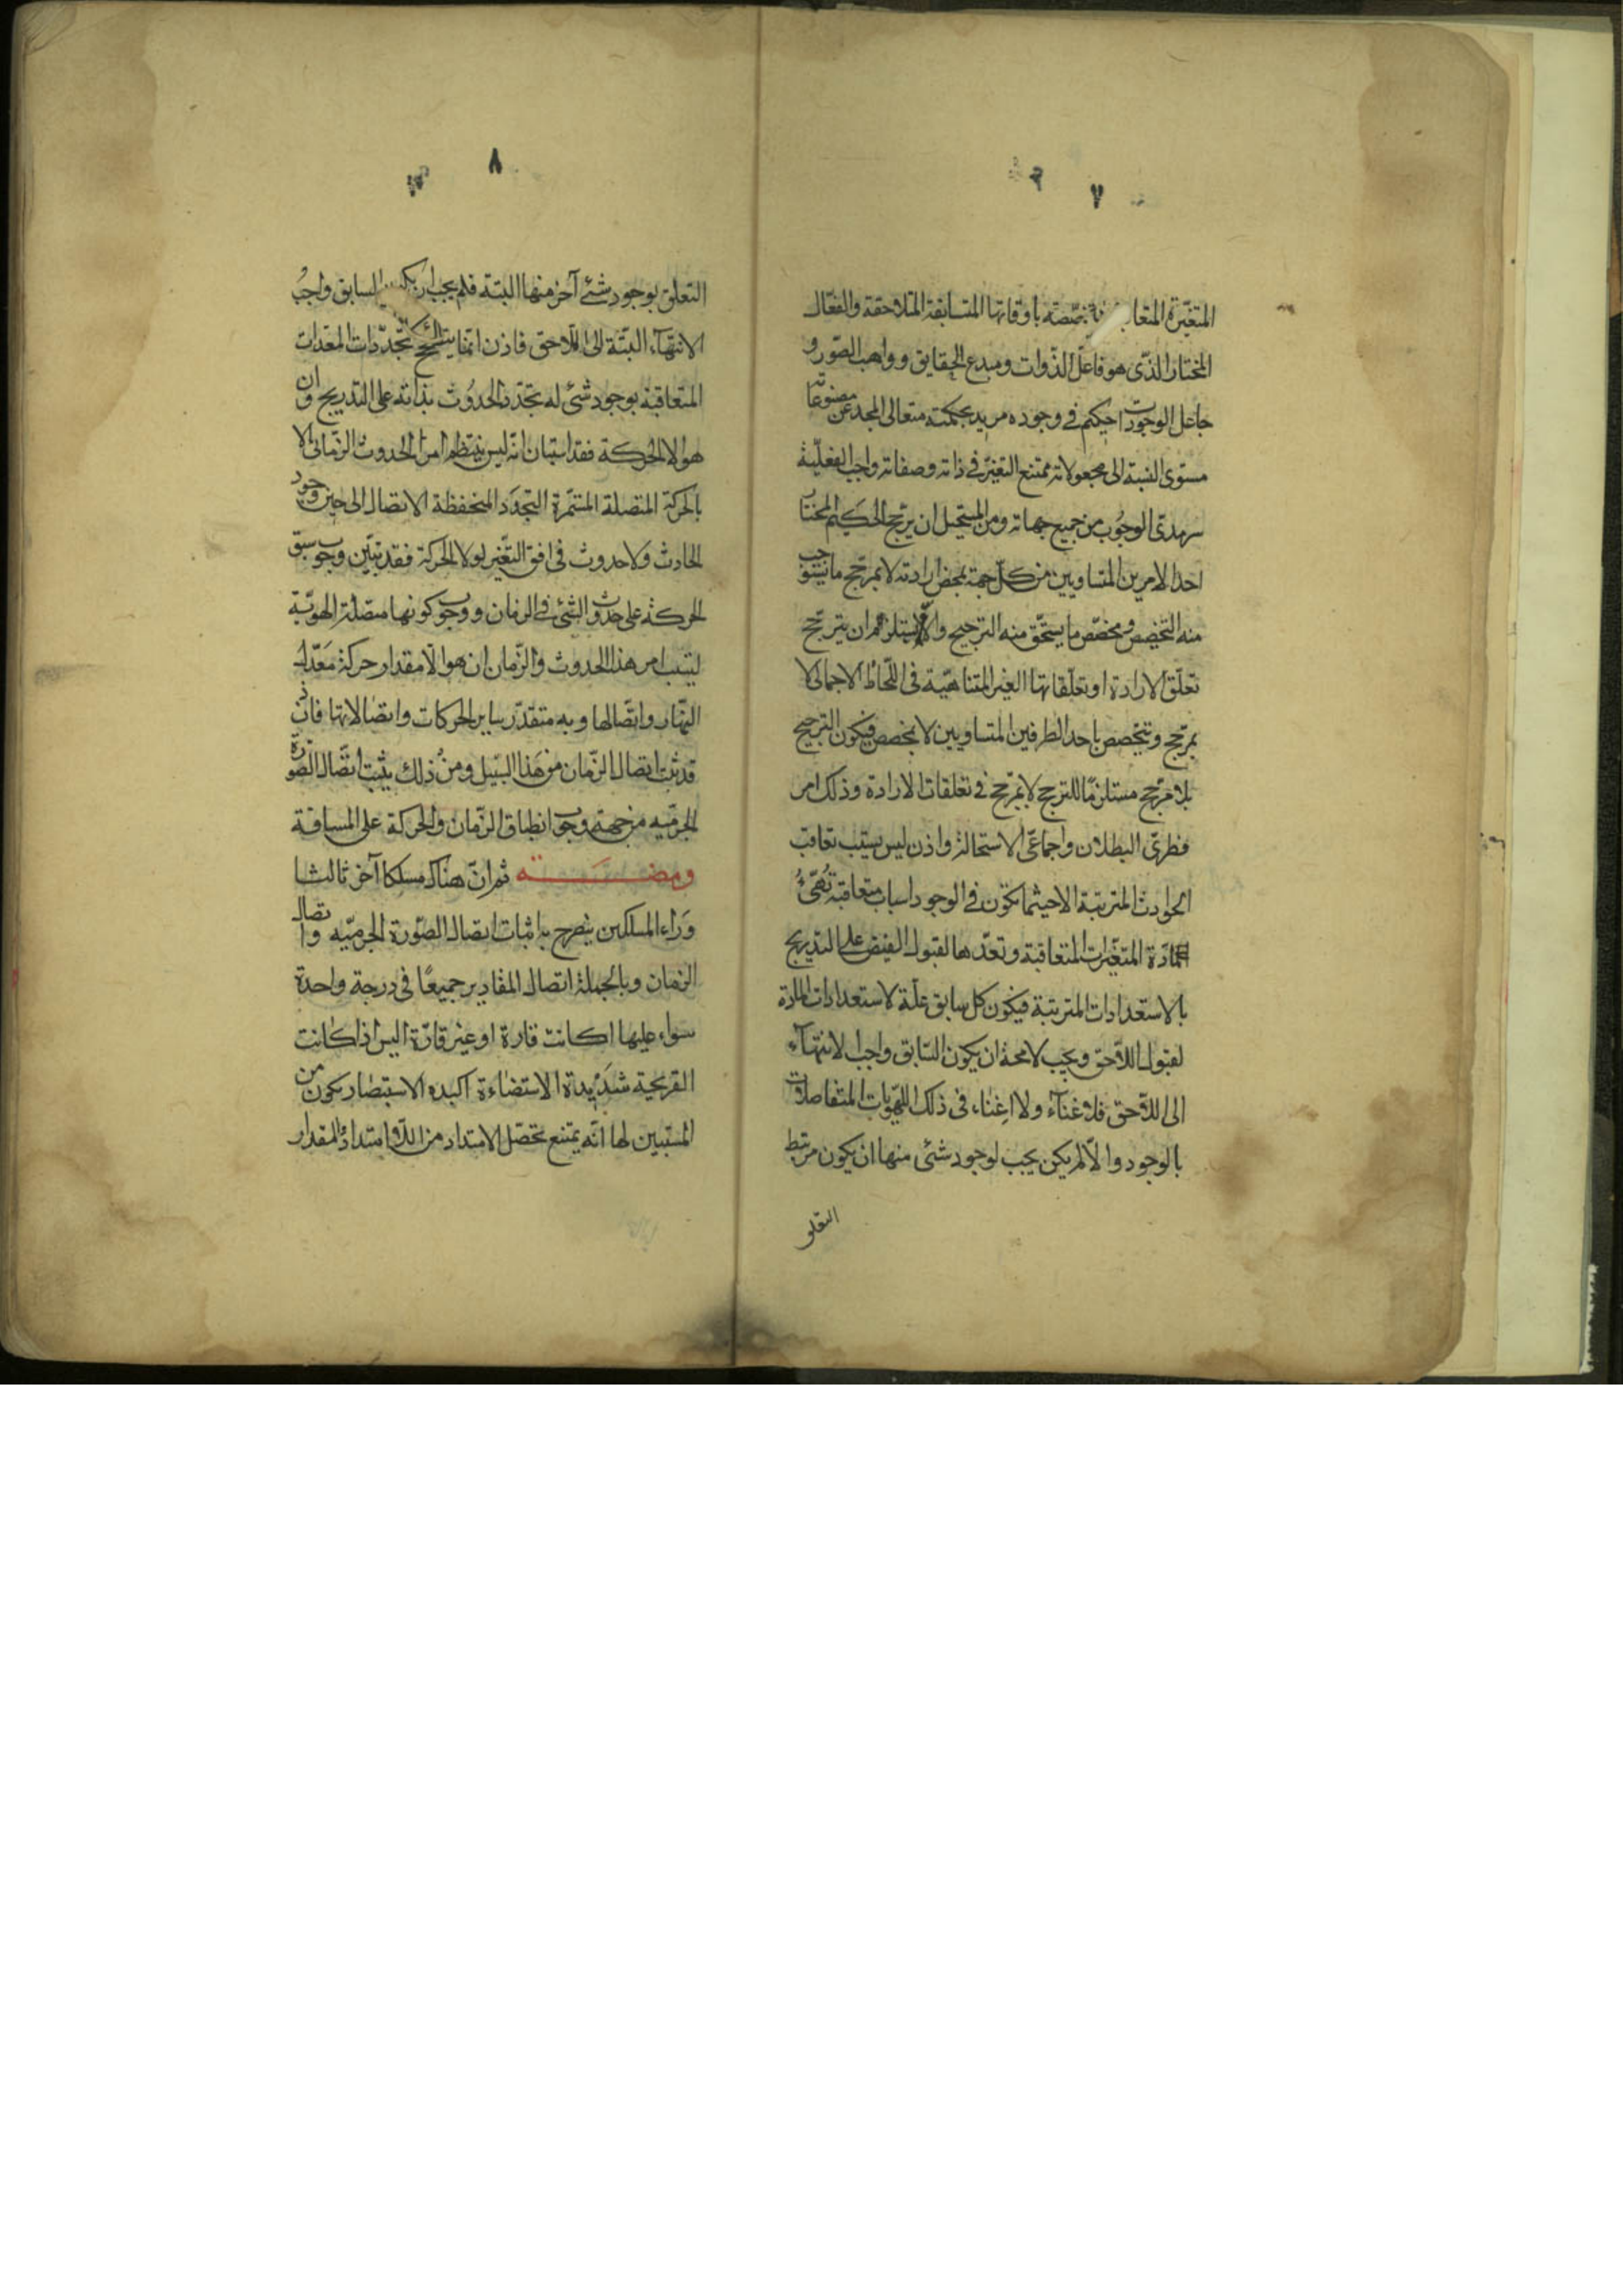 ٧
المتغيّرة المتعا بخصّصته باوقاتها المتسابقة المتلاحقة والفعّال
المختار الذّى هو فاعل الذّوات ومبدع الحقايق وواهب الصّور و
جاعل الوجودات احيكم فى وجوده مريد بحكمته متعالى المجد عن
مستوى النسبة الى مجعولاته ممتنع التغيّر فى ذاته وصفاته واجب الفعليّة
سرمدى الوجوب من جميع جهاته ومن المستحيل ان يرجّح الحكيم المختار
احد الامرين المتساويين من كلّ جهة بمحض ارادته لا بمرجّح ما يستوجب
منه التخصص ومخصّص ما يستحّق منه الترجيح والّا استلزم ان يترجّح
تعلّق الارادة او تعلّقاتها الغير المتناهيّة فى اللّحاظ الاجمالى لا
بمرجّح وتتخصص باحد الطرفين المتساويين لا بمخصص فيكون الترجيح
بلا مرجّح مستلزمًا للترجح لا بمرجّح فى تعلقات الارادة وذلك امر
فطرىّ البطلان واجماعّى الاستحالة واذن ليس يستتب تعاقب
الحوادث المترتبة الا حيثما تكون فى الوجود اسباب متعاقبة تُهيّئُ
المادّة المتغيّرات المتعاقبة وتعدّها لقبول الفيض على التدريج
بالاستعدادات المترتبة فيكون كل سابق علّة لاستعدادات المادة
لقبول اللاّحق ويجب لا محة ان يكون السّابق واجب الانتهآء
الى اللاّحق فلا غنآء ولا اغناء فى ذلك اللهوّيات المتفاصلات
بالوجود والاّ لم يكن يجب لوجود شئ منها ان يكون مرتبط
التعلق
٨
التعلق بوجود شئ آخر منها البتة فلم يجب ان يكون السابق واجبُ
الانتهآء البتّة الى اللّاحق فاذن انّما يتصحّح تجدّدات المعدات
المتعاقبة بوجود شئ له تجدّد الحدوث بذاته على التدريج وان
هو الا الحركة فقد استبان انّه ليس ينتظم امر الحدوث الزّمانى الا
بالحركة المتصلة المستمّرة التجدّد المنحفظة الاتصال الى حين وجود
الحادث ولا حدوث فى افق التّغير لولا الحركة فقد تبيّن وجوب سبق
الحركة على حدوث الشئ فى الزمان ووجوب كونها متصلة الهويّة
ليتب امر هذا الحدوث والزّمان ان هو الّا مقدار حركة مَعّدل
النّهار واتّصالها وبه متقدّر ساير الحركات واتصالاتها فاذن
قد ثبت اتصال الزّمان من هذا السّبيل ومن ذلك يثبت اتّصال الصّورة
الجرميّه من جهة وجوب انطباق الزّمان والحركة على المسافة
ومضـــه ثم انّ هناك مسلكا آخر ثالثا
وَراء المسلكين يتصرح به اثبات اتصال الصّورة الجرميّه واتصال
الزمان وبالجملة اتصال المقادير جميعًا فى درجة واحدة
سواء عليها اكانت قارة او غير قارّة اليس اذا كانت
القريحية شديدة الاستضاءة اكيده الاستبصار يكون من
المستبين لها انّه يمتنع تحصّل الامتداد من اللّا امتداد والمقدار